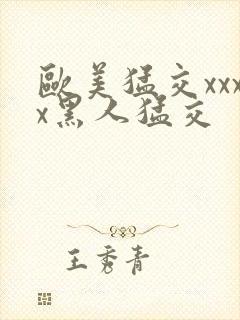 歐美猛交xxx
x黑人猛交
王秀青